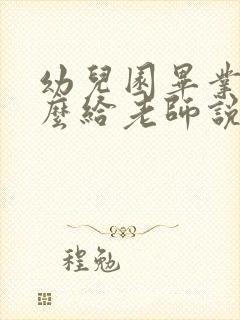 幼兒園畢業
麼給老師說
程勉